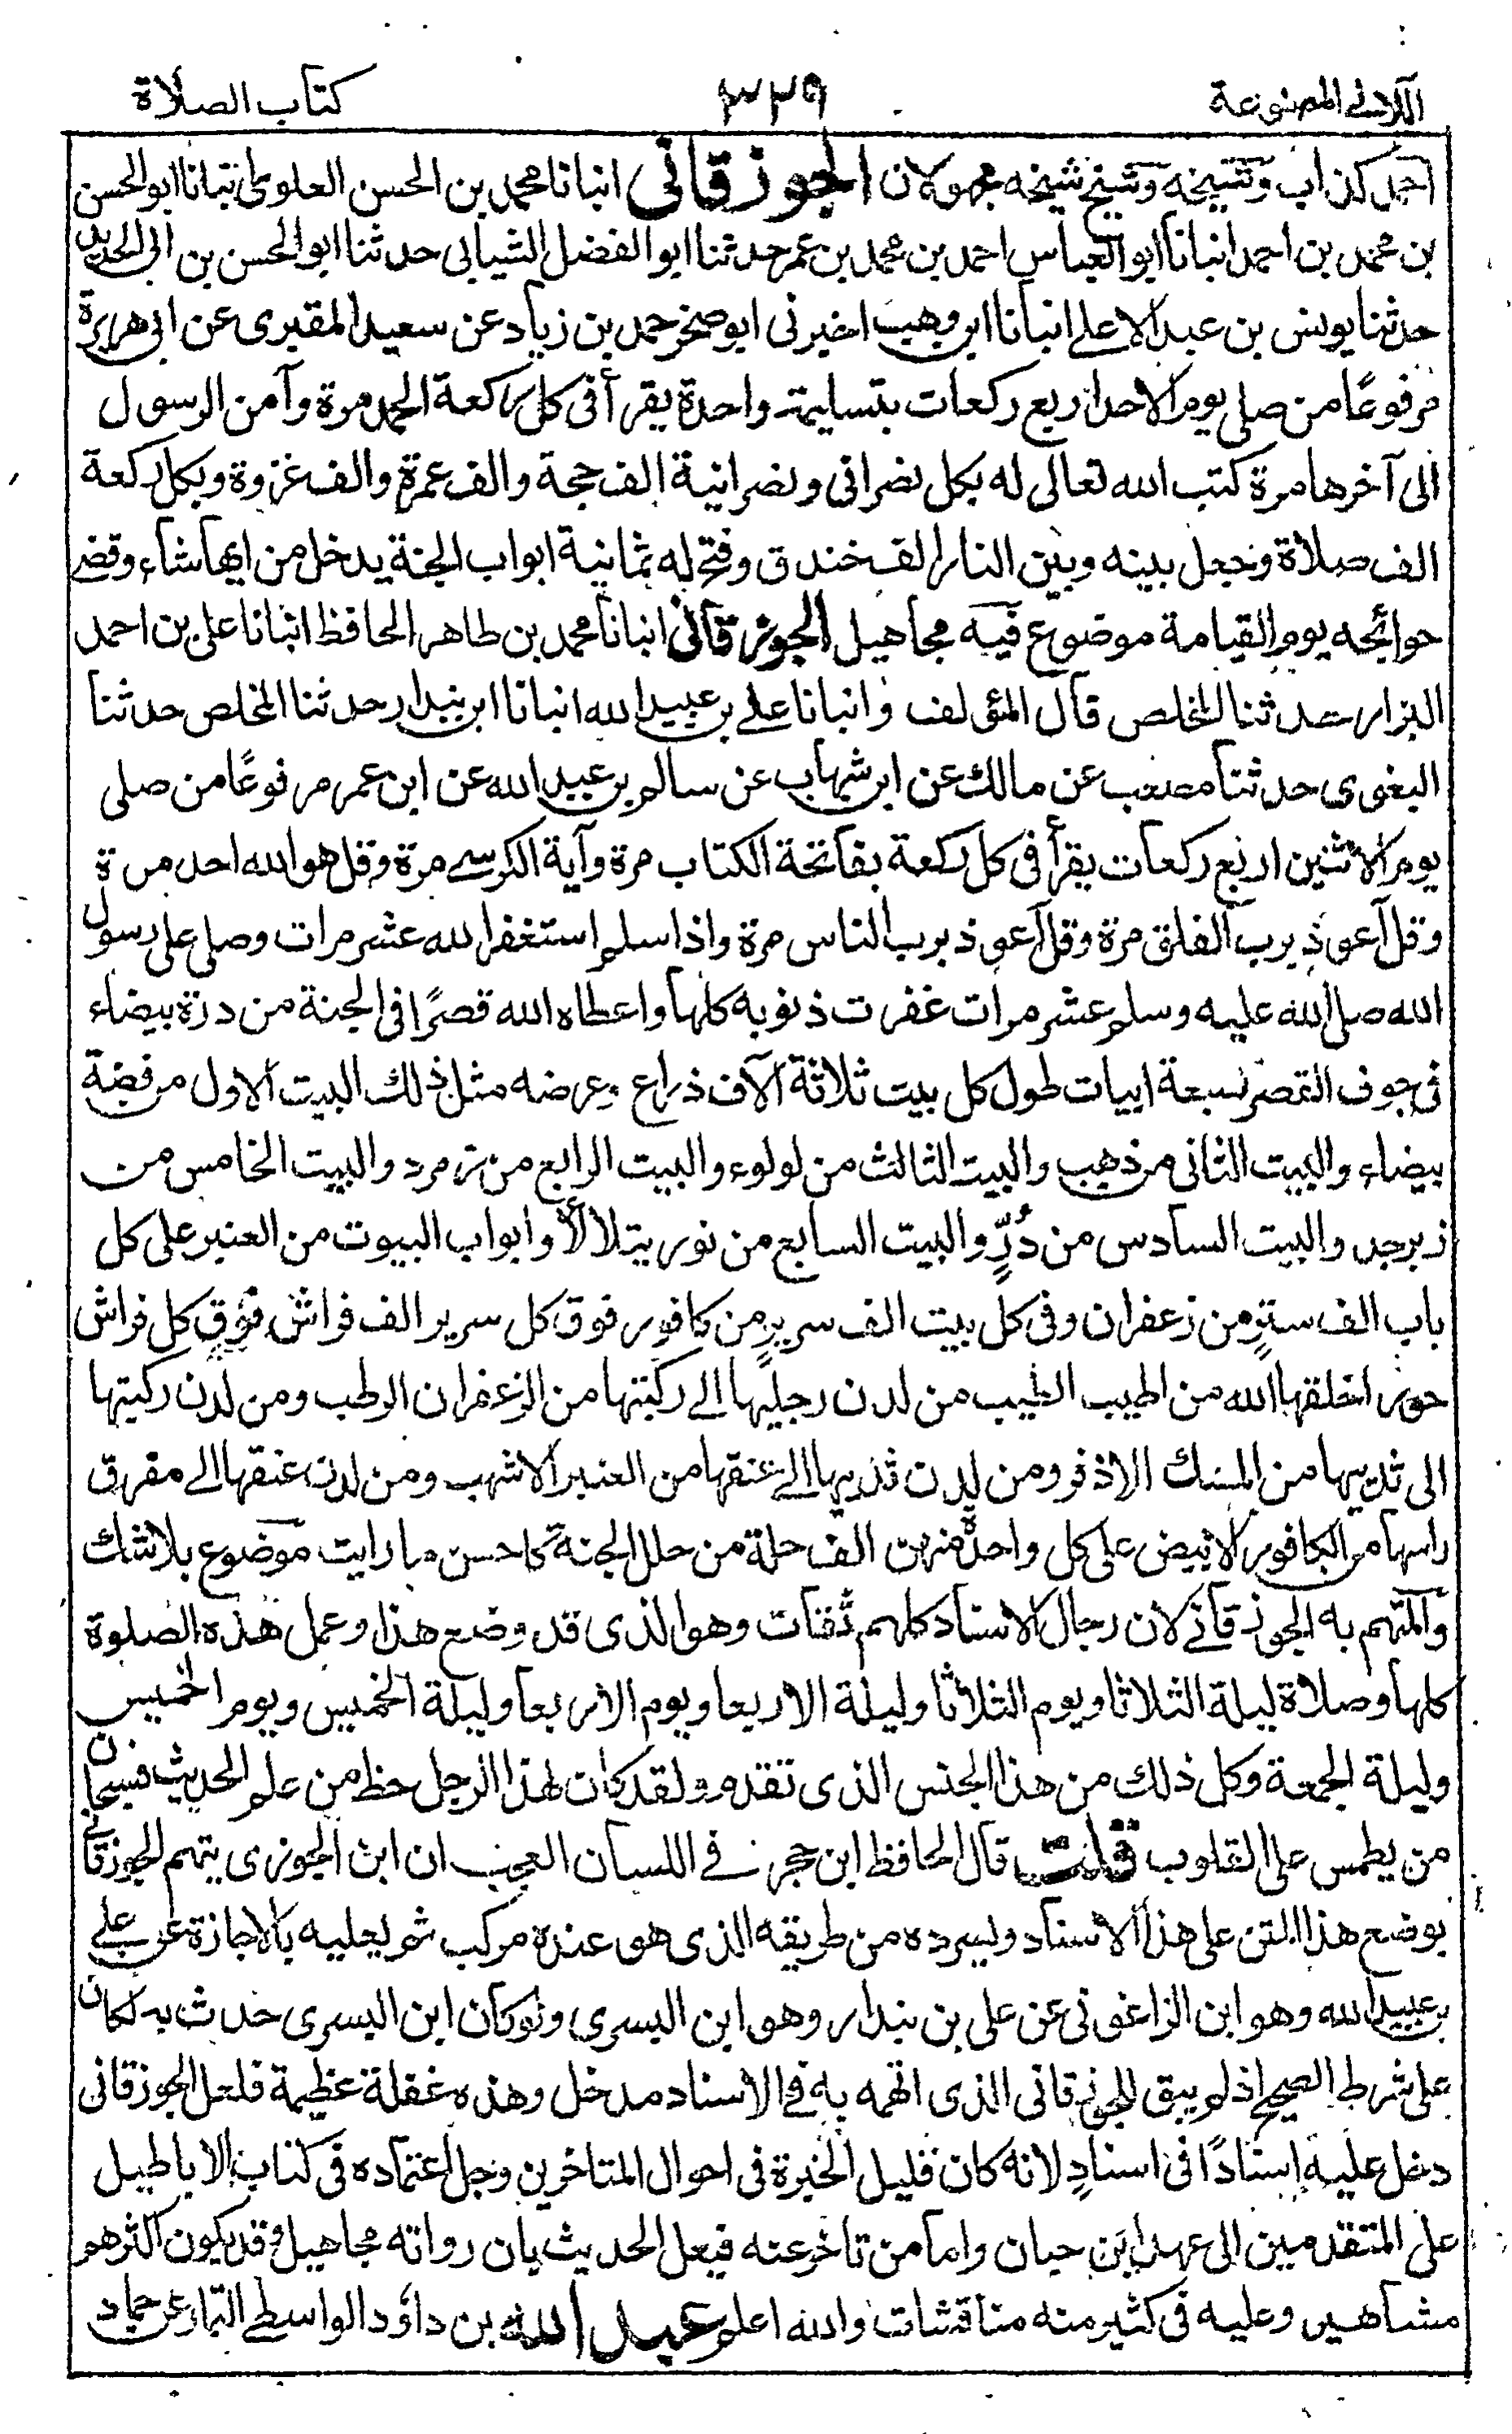 اللآلئ المصنوعة ٣٢٩ كتاب الصلاة
احمد كذاب وشيخه وشيخ شيخه مجهولان الجوزقاني انبانا محمد بن الحسن العلوي انبانا ابو الحسن
بن محمد بن احمد انبانا ابو العباس احمد بن محمد بن عمر حدثنا ابو الفضل الشيباني حدثنا ابو الحسن بن ابى الحديد
حدثنا يونس بن عبد الاعلى انبانا ابن وهب اخبرنى ابو صخر حمد بن زياد عن سعيد المقبرى عن ابى هريرة
مرفوعًا من صلى يوم الاحد اربع ركعات بتسليمة واحدة يقرأ فى كل ركعة الحمد مرة وآمن الرسول
الى آخرها مرة كتب الله تعالى له بكل نصرانى ونصرانية الف حجة والف عمرة والف غزوة وبكل ركعة
الف صلاة وجعل بينه وبين النار الف خندق وفتح له ثمانية ابواب الجنة يدخل من ايها شاء وقضى
حوائجه يوم القيامة موضوع فيه مجاهيل الجوزقانى انبانا محمد بن طاهر الحافظ انبانا على بن احمد
البزار حدثنا المخلص قال المؤلف وانبانا على بن عبيد الله انبانا ابن بندار حدثنا المخلص حدثنا
البغوى حدثنا مصعب عن مالك عن ابن شهاب عن سالم بن عبيد الله عن ابن عمر مرفوعًا من صلى
يوم الاثنين اربع ركعات يقرأ فى كل ركعة بفاتحة الكتاب مرة وآية الكرسى مرة وقل هو الله احد مرة
وقل آعوذ برب الفلق مرة وقل آعوذ برب الناس مرة واذا سلم استغفر الله عشر مرات وصلى على رسول
الله صلى الله عليه وسلم عشر مرات غفرت ذنوبه كلها واعطاه الله قصرًا فى الجنة من درة بيضاء
فى جوف القصر سبعة ابيات طول كل بيت ثلاثة آلاف ذراع وعرضه مثل ذلك البيت الاول من فضة
بيضاء والبيت الثانى من ذهب والبيت الثالث من لولوء والبيت الرابع من زمرد والبيت الخامس من
زبرجد والبيت السادس من دُرٍّ والبيت السابع من نور يتلالأ وابواب البيوت من العنبر على كل
باب الف سترٍ من زعفران وفى كل بيت الف سريرٍ من كافور فوق كل سرير الف فراش فوق كل فراش
حورا خلقها الله من اطيب الطيب من لدن رجليها الى ركبتها من الزعفران الرطب ومن لدن ركبتها
الى ثدييها من المسك الاذفر ومن لدن ثدييها الى عنقها من العنبر الاشهب ومن لدن عنقها الى مفرق
راسها من الكافور الابيض على كل واحدة منهن الف حلة من حلل الجنة كاحسن ما رايت موضوع بلا شك
والمتهم به الجوزقانى لان رجال الاسناد كلهم ثقات وهو الذى قد وضع هذا وعمل هذه الصلوة
كلها وصلاة ليلة الثلاثا ويوم الثلاثا وليلة الاربعا ويوم الاربعا وليلة الخميس ويوم الخميس
وليلة الجمعة وكل ذلك من هذا الجنس الذى تقدم ولقد كان لهذا الرجل حظ من علم الحديث فسبحان
من يطمس على القلوب قلت قال الحافظ ابن حجر فى اللسان العجب ان ابن الجوزى يتهم الجوزقانى
بوضع هذا المتن على هذا الاسناد ويسرده من طريقه الذى هو عنده مركب ثم يعليه بالاجازة عن على
بن عبيد الله وهو ابن الزاغونى عن على بن بندار وهو ابن البسرى ولوكان ابن البسرى حدث به لكان
على شرط الصحيح اذ لم يبق للجوزقانى الذى اتهمه به فى الاسناد مدخل وهذه غفلة عظيمة فلعل الجوزقانى
دخل عليه اسنادًا فى اسنادٍ لانه كان قليل الخبرة فى احوال المتاخرين وجل اعتماده فى كتاب الاباطيل
على المتقدمين الى عهد ابن حبان واما من تاخر عنه فيعل الحديث بان رواته مجاهيل وقد يكون اكثرهم
مشاهير وعليه فى كثير منه مناقشات والله اعلم عبد الله بن داؤد الواسطى التمار عن حماد